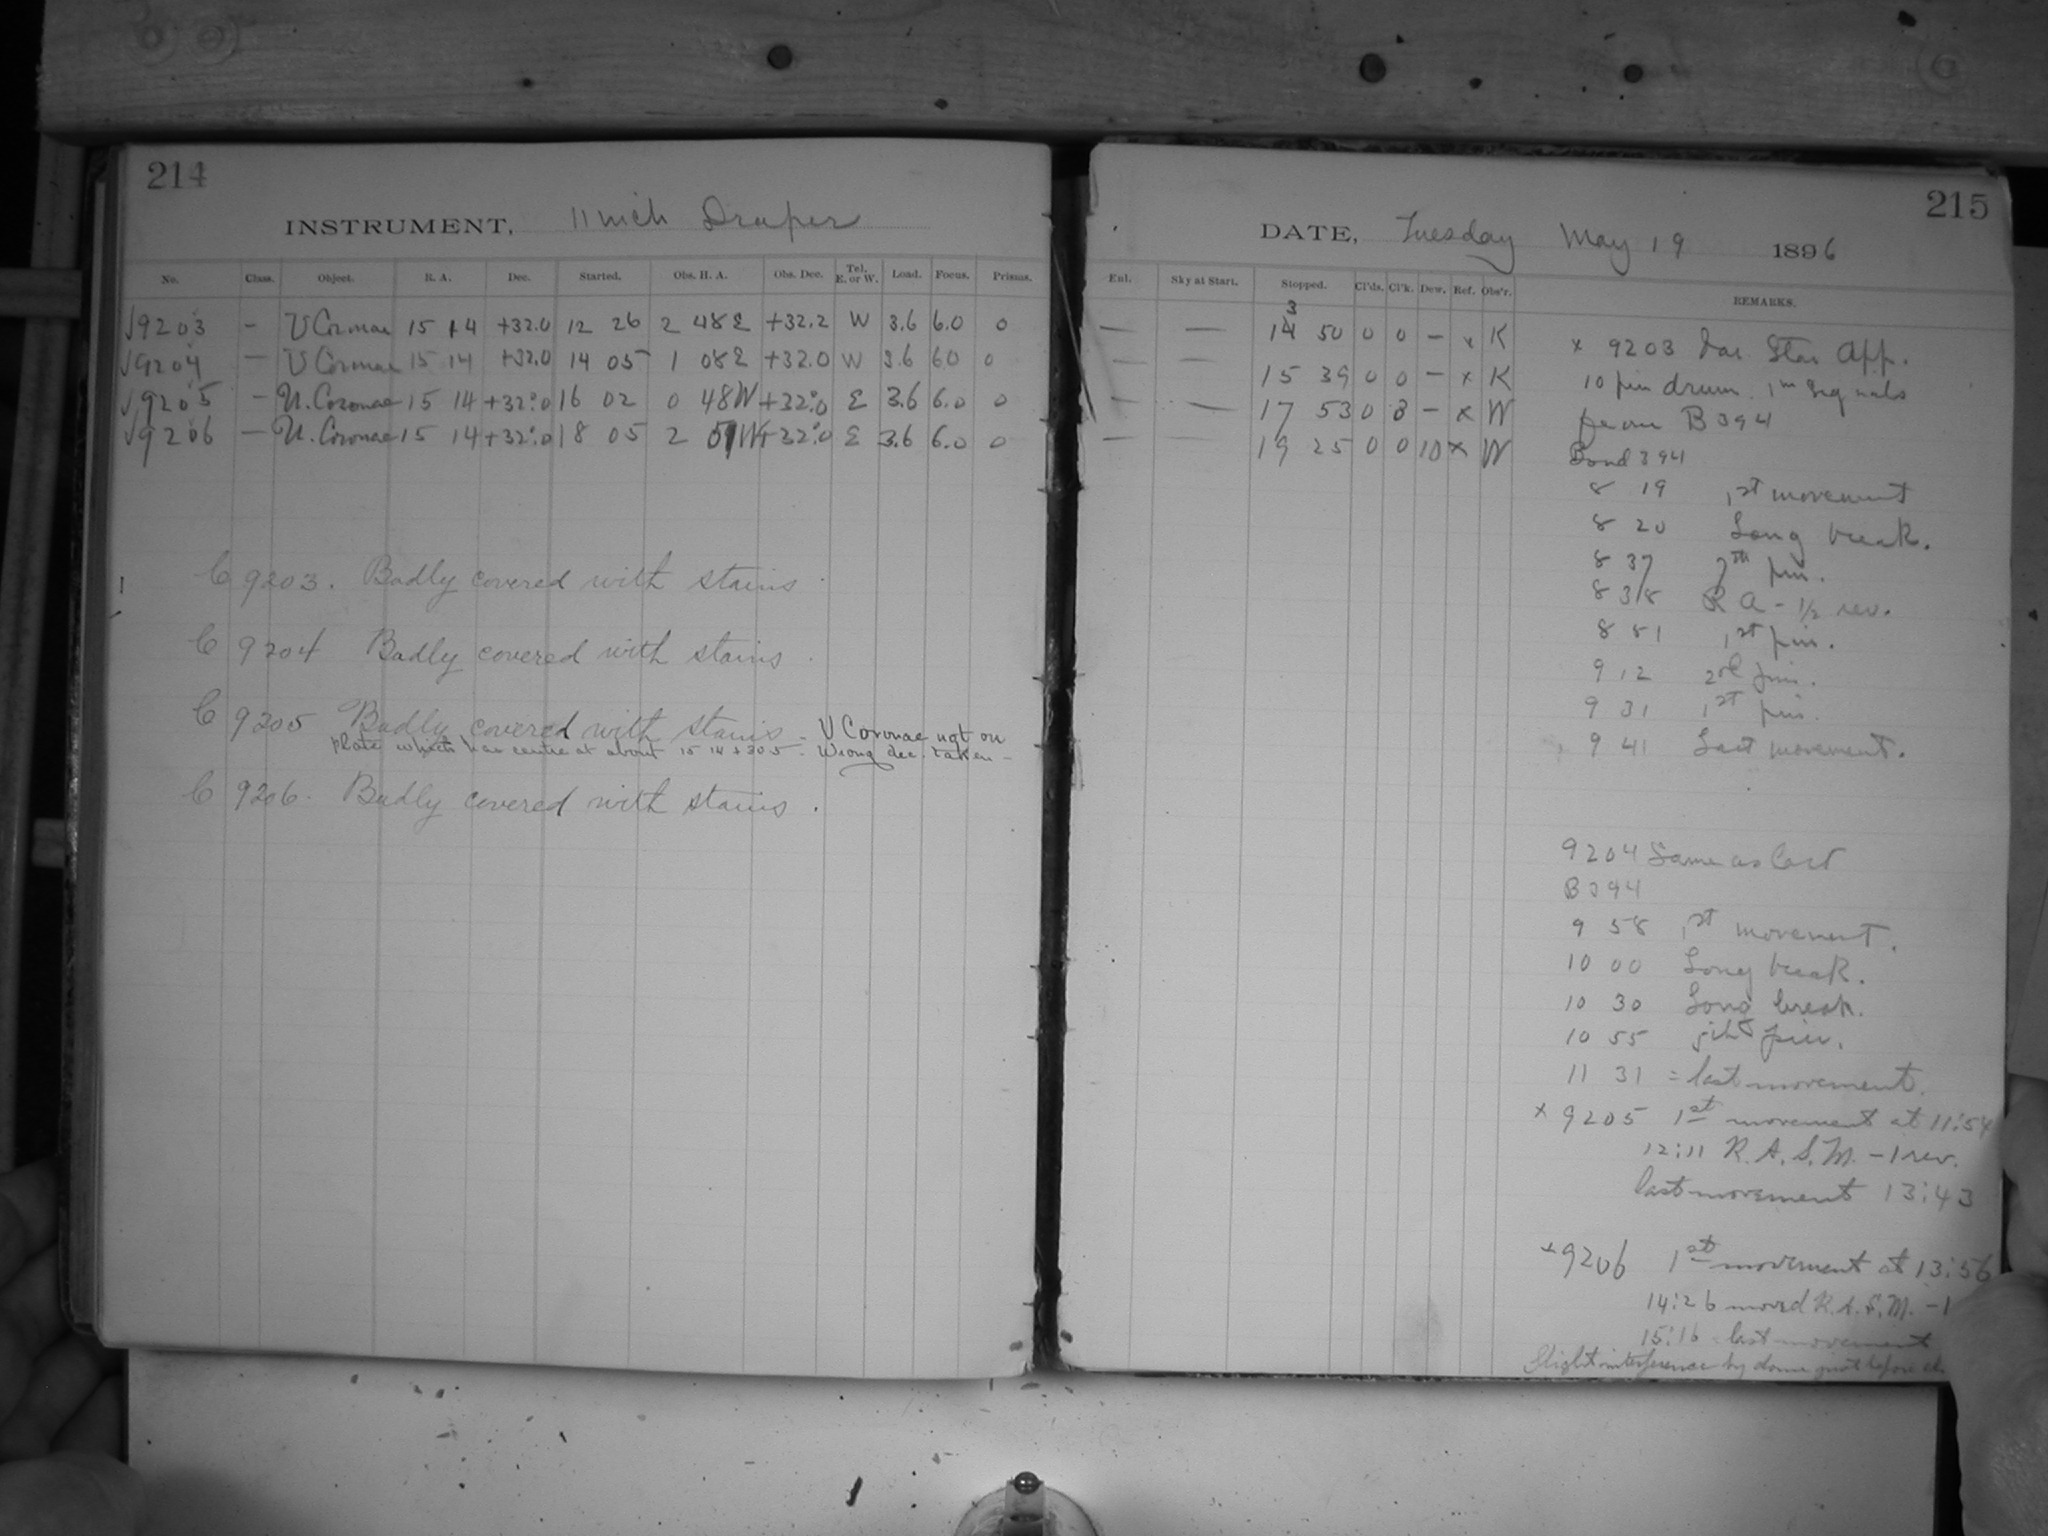 214
INSTRUMENT, 11 inch Draper
No. Class. Object. R. A. Dec. Started. Obs. H. A. Obs. Dec. Tel. E. or W. Load. Focus. Prisms.
√9203 — U Coronae 15 14 +32.0 12 26 2 48 E +32.2 W 3.6 6.0 0
√9204 — U Coronae 15 14 +32.0 14 05 1 08 E +32.0 W 3.6 6.0 0
√9205 — U. Coronae 15 14 +32°.0 16 02 0 48 W +32°.0 E 3.6 6.0 0
√9206 — U. Coronae 15 14 +32°.0 18 05 2 51 W +32°.0 E 3.6 6.0 0
C 9203. Badly covered with stains.
C 9204 Badly covered with stains.
C 9205 Badly covered with stains – U Coronae not on
plate which has centre at about 15 14 +30.5 – Wrong dec. taken –
C 9206. Badly covered with stains.
215
DATE, Tuesday May 19 1896
Enl. Sky at Start. Stopped. Cl'ds. Cl'k. Dew. Ref. Obs'r. REMARKS.
— — 13 50 0 0 – x K
— — 15 39 0 0 – x K
— — 17 53 0 3 – x W
— — 19 25 0 0 10 x W
x 9203 Var. Star App.
10 pin drum. 1m signals
from B 394
Bond 394
8 19 1st movement
8 20 Long break.
8 37 7th pin.
8 38 R A – 1/2 rev.
8 51 1st pin.
9 12 2nd pin.
9 31 1st pin.
9 41 Last movement.
9204 Same as last
B 394
9 58 1st movement.
10 00 Long break.
10 30 Long break.
10 55 5th pin.
11 31 = last movement.
x 9205 1st movement at 11:54
12:11 R. A. S. M. – 1 rev.
last movement 13:43
x 9206 1st movement at 13:56
14:26 moved R. A. S. M. – 1
15:16 last movement
Slight interference by dome just before